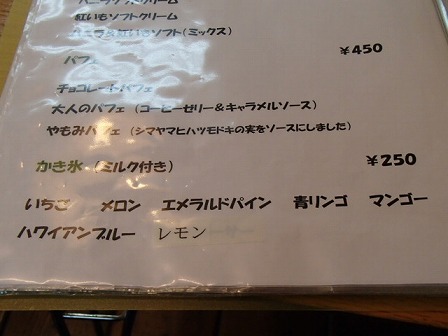 バニラソフトクリーム
紅いもソフトクリーム
バニラ&紅いもソフト(ミックス)
パフェ ¥450
チョコレートパフェ
大人のパフェ (コーヒーゼリー&キャラメルソース)
やもみパフェ (シマヤマヒハツモドキの実をソースにしました)
かき氷 (ミルク付き) ¥250
いちご メロン エメラルドパイン 青リンゴ マンゴー
ハワイアンブルー レモン